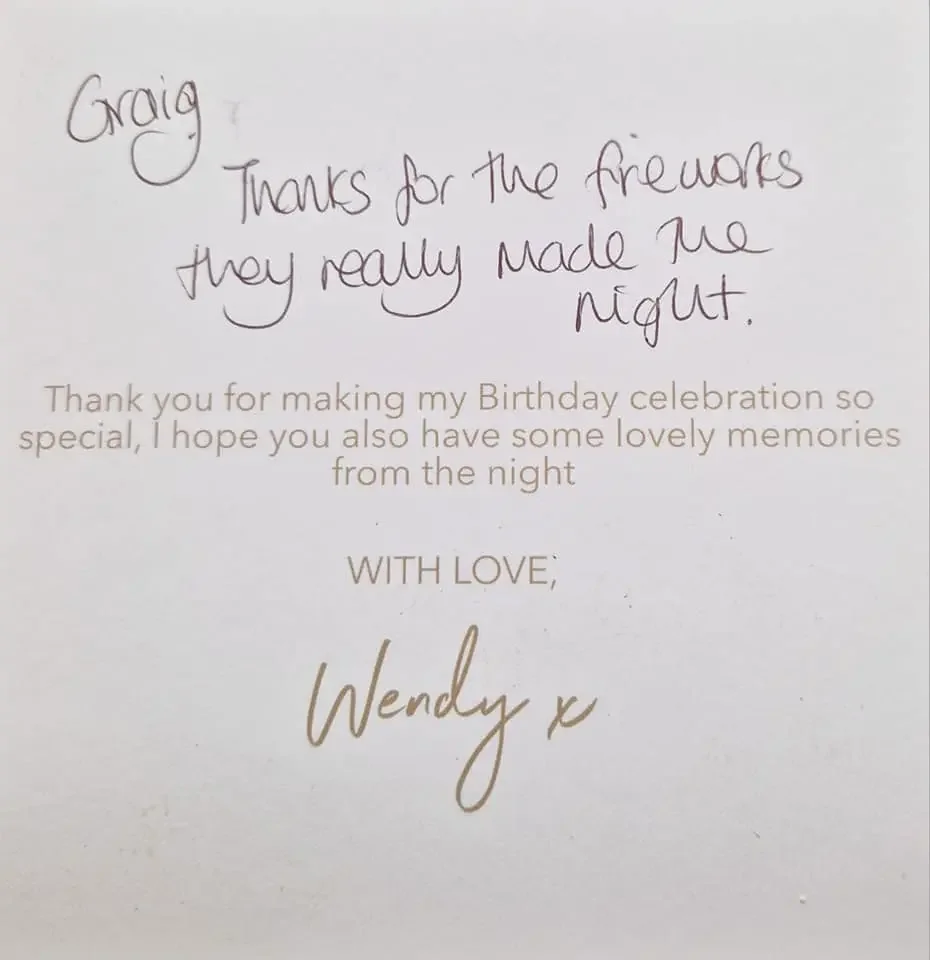 Graig
Thanks for the fireworks
they really made the
night.
Thank you for making my Birthday celebration so
special, I hope you also have some lovely memories
from the night
WITH LOVE,
Wendy x